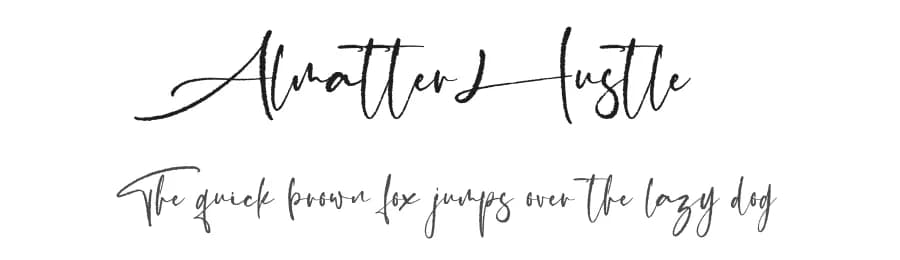 Almatter Hustle
The quick brown fox jumps over the lazy dog